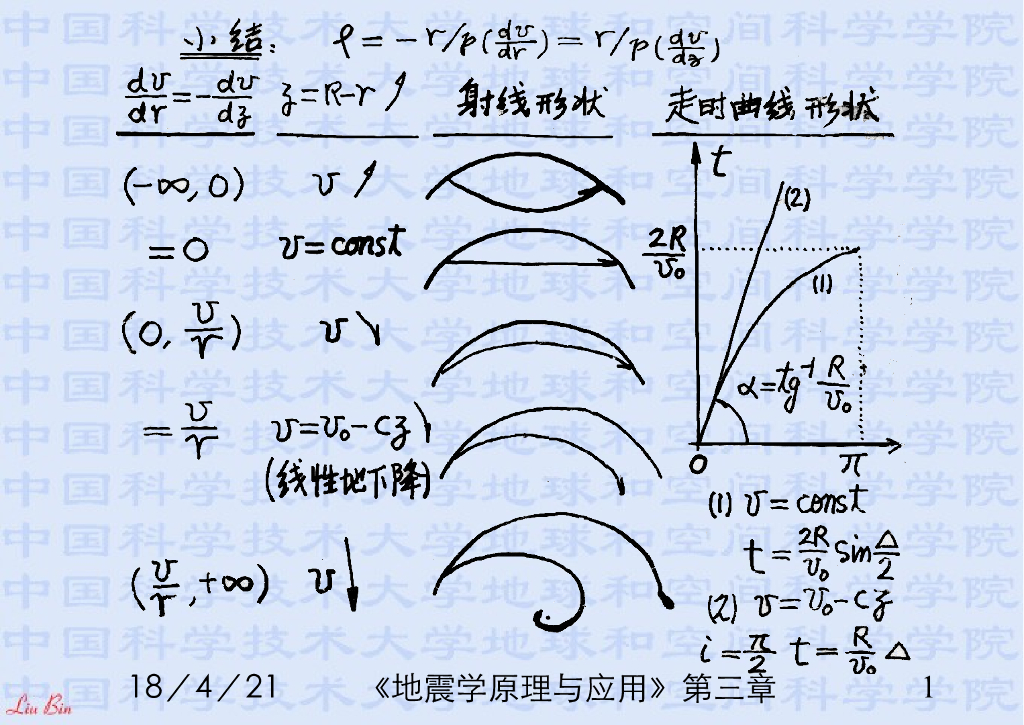 小结: ρ = -r/p(dv/dr) = r/p(dv/dz)
dv/dr = -dv/dz z = R-r ↗ 射线形状 走时曲线形状
(-∞, 0) v ↗
= 0 v = const
(0, v/r) v ↘
= v/r v = v₀ - cz ↘
(线性地下降)
(v/r, +∞) v ↓
t
(2)
2R/v₀
(1)
α = tg⁻¹ R/v₀
0 π
(1) v = const
t = 2R/v₀ sin Δ/2
(2) v = v₀ - cz
i = π/2 t = R/v₀ Δ
18/4/21 《地震学原理与应用》第三章 1
Liu Bin
中国科学技术大学地球和空间科学学院